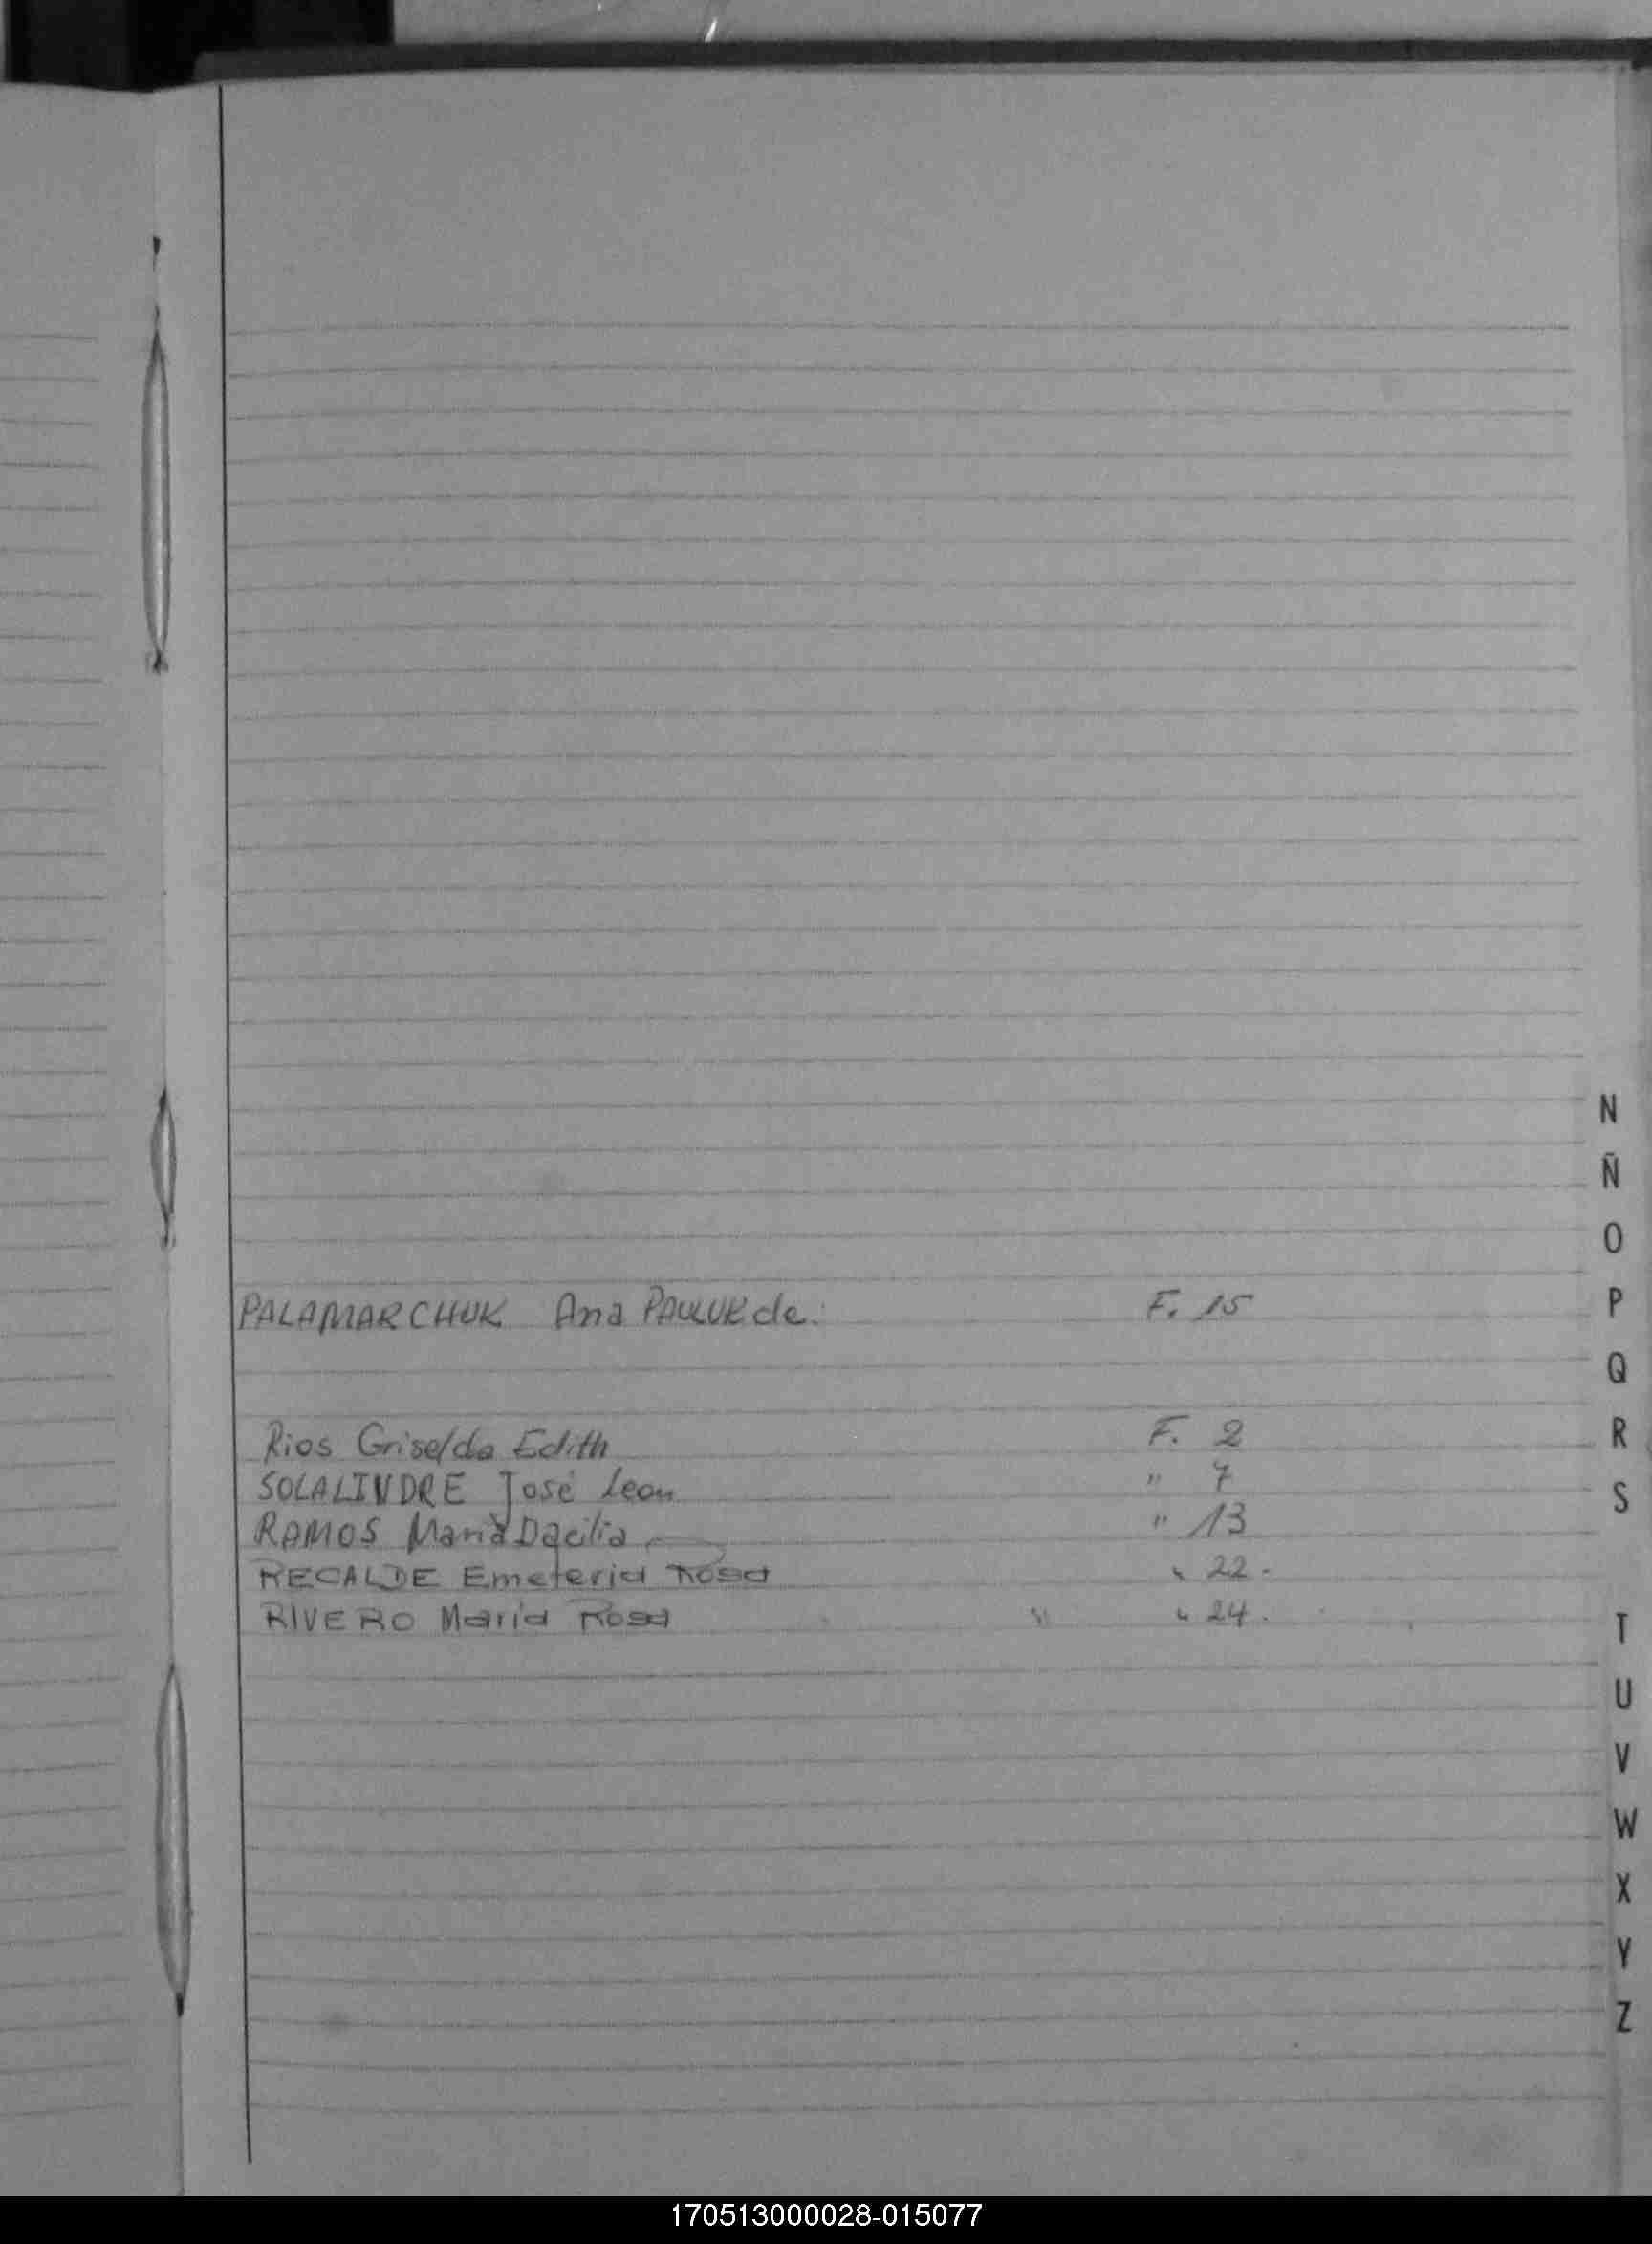 N
Ñ
O
PALAMARCHUK Ana PAULUK de. F. 15 P
Q
Rios Griselda Edith F. 2 R
SOLALINDRE José Leon " 7 S
RAMOS Maria Dacilia " 13
RECALDE Emeteria Rosa " 22.
RIVERO Maria Rosa " 24.
T
U
V
W
X
Y
Z
170513000028-015077